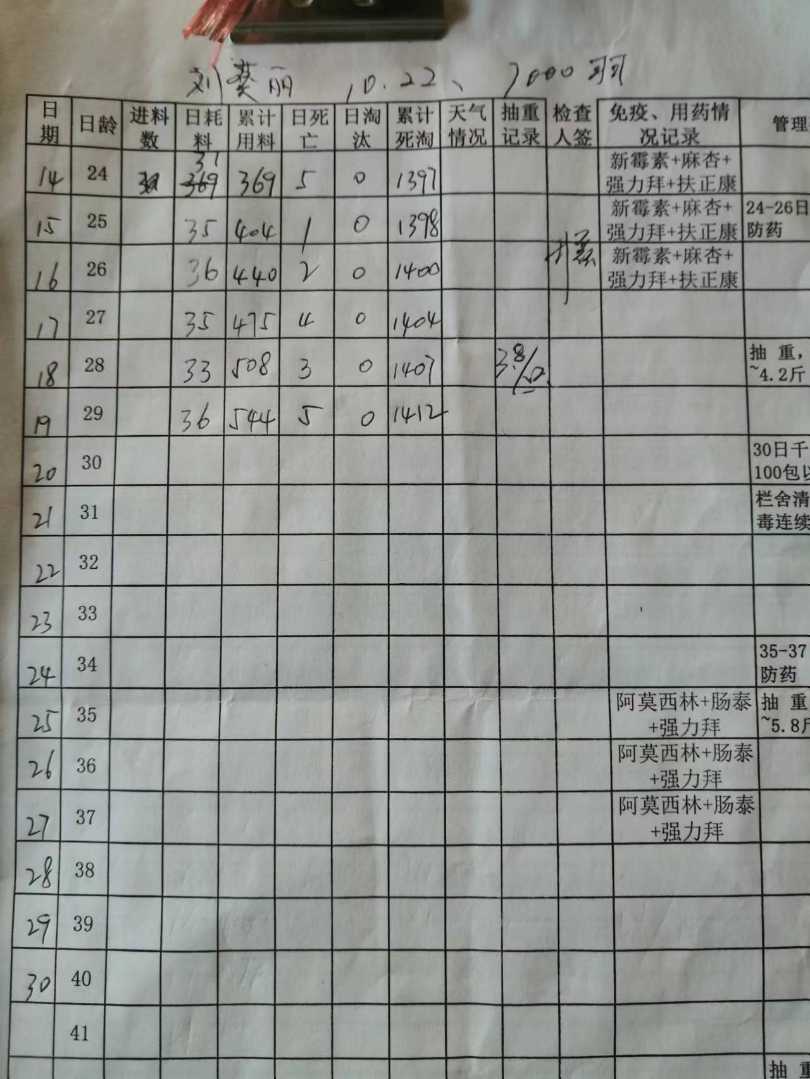 刘葵丽 10.22、7000羽
日期 日龄 进料数 日耗料 累计用料 日死亡 日淘汰 累计死淘 天气情况 抽重记录 检查人签 免疫、用药情况记录 管理
14 24 31 369 5 0 1397 新霉素+麻杏+强力拜+扶正康
15 25 35 404 1 0 1398 新霉素+麻杏+强力拜+扶正康 24-26日 防药
16 26 36 440 2 0 1400 新霉素+麻杏+强力拜+扶正康
17 27 35 475 4 0 1404
18 28 33 508 3 0 1407 3.8/ 抽 重， ~4.2斤
19 29 36 544 5 0 1412
20 30 30日千 100包以
21 31 栏舍清 毒连续
22 32
23 33
24 34 35-37 防药
25 35 阿莫西林+肠泰+强力拜 抽 重 ~5.8斤
26 36 阿莫西林+肠泰+强力拜
27 37 阿莫西林+肠泰+强力拜
28 38
29 39
30 40
41
抽 重